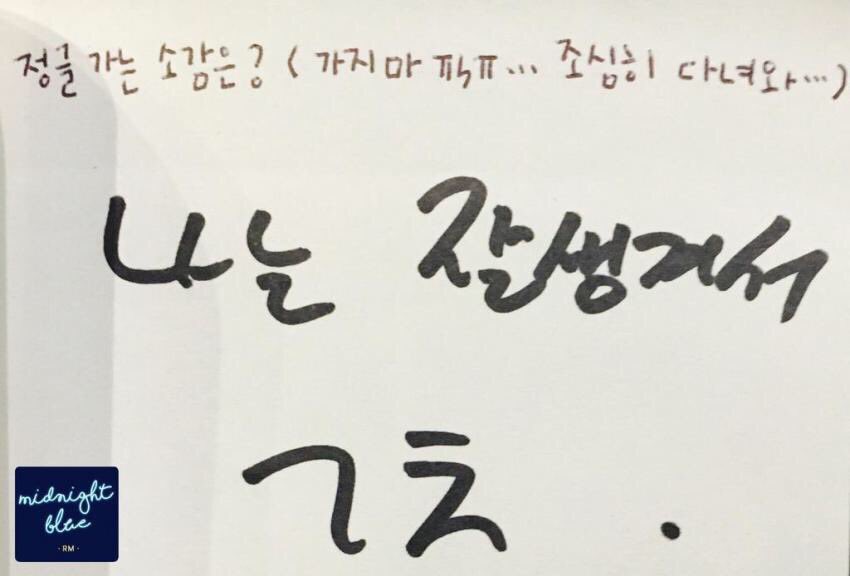 정글 가는 소감은? ( 가지마 ㅠㅅㅠ... 조심히 다녀와...)
나는 잘생겨서
ㄱㅊ .
midnight
blue
· RM ·